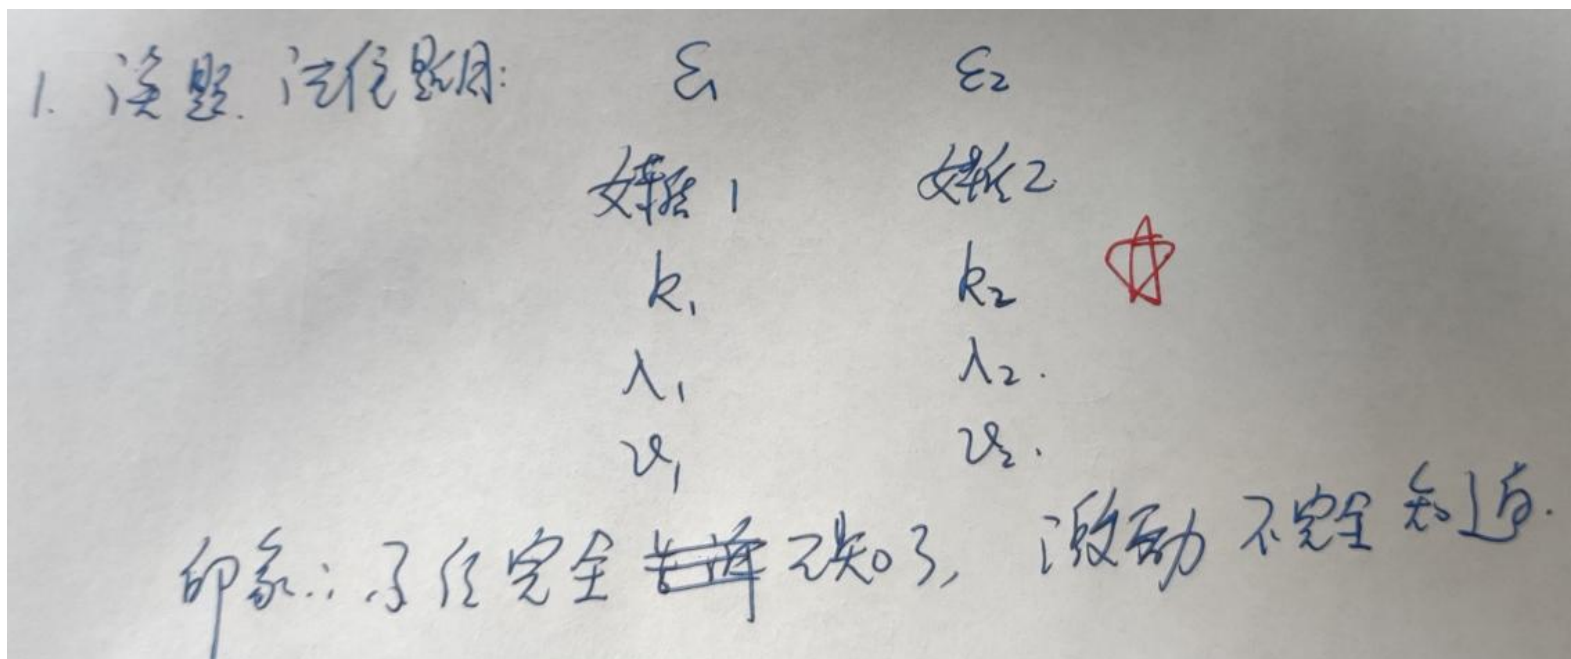 1. 读题. 记住题目: ε1 ε2
媒质1 媒质2
k1 k2
λ1 λ2.
v1 v2.
印象: 完全 已知了, 激动 不完全 知道.